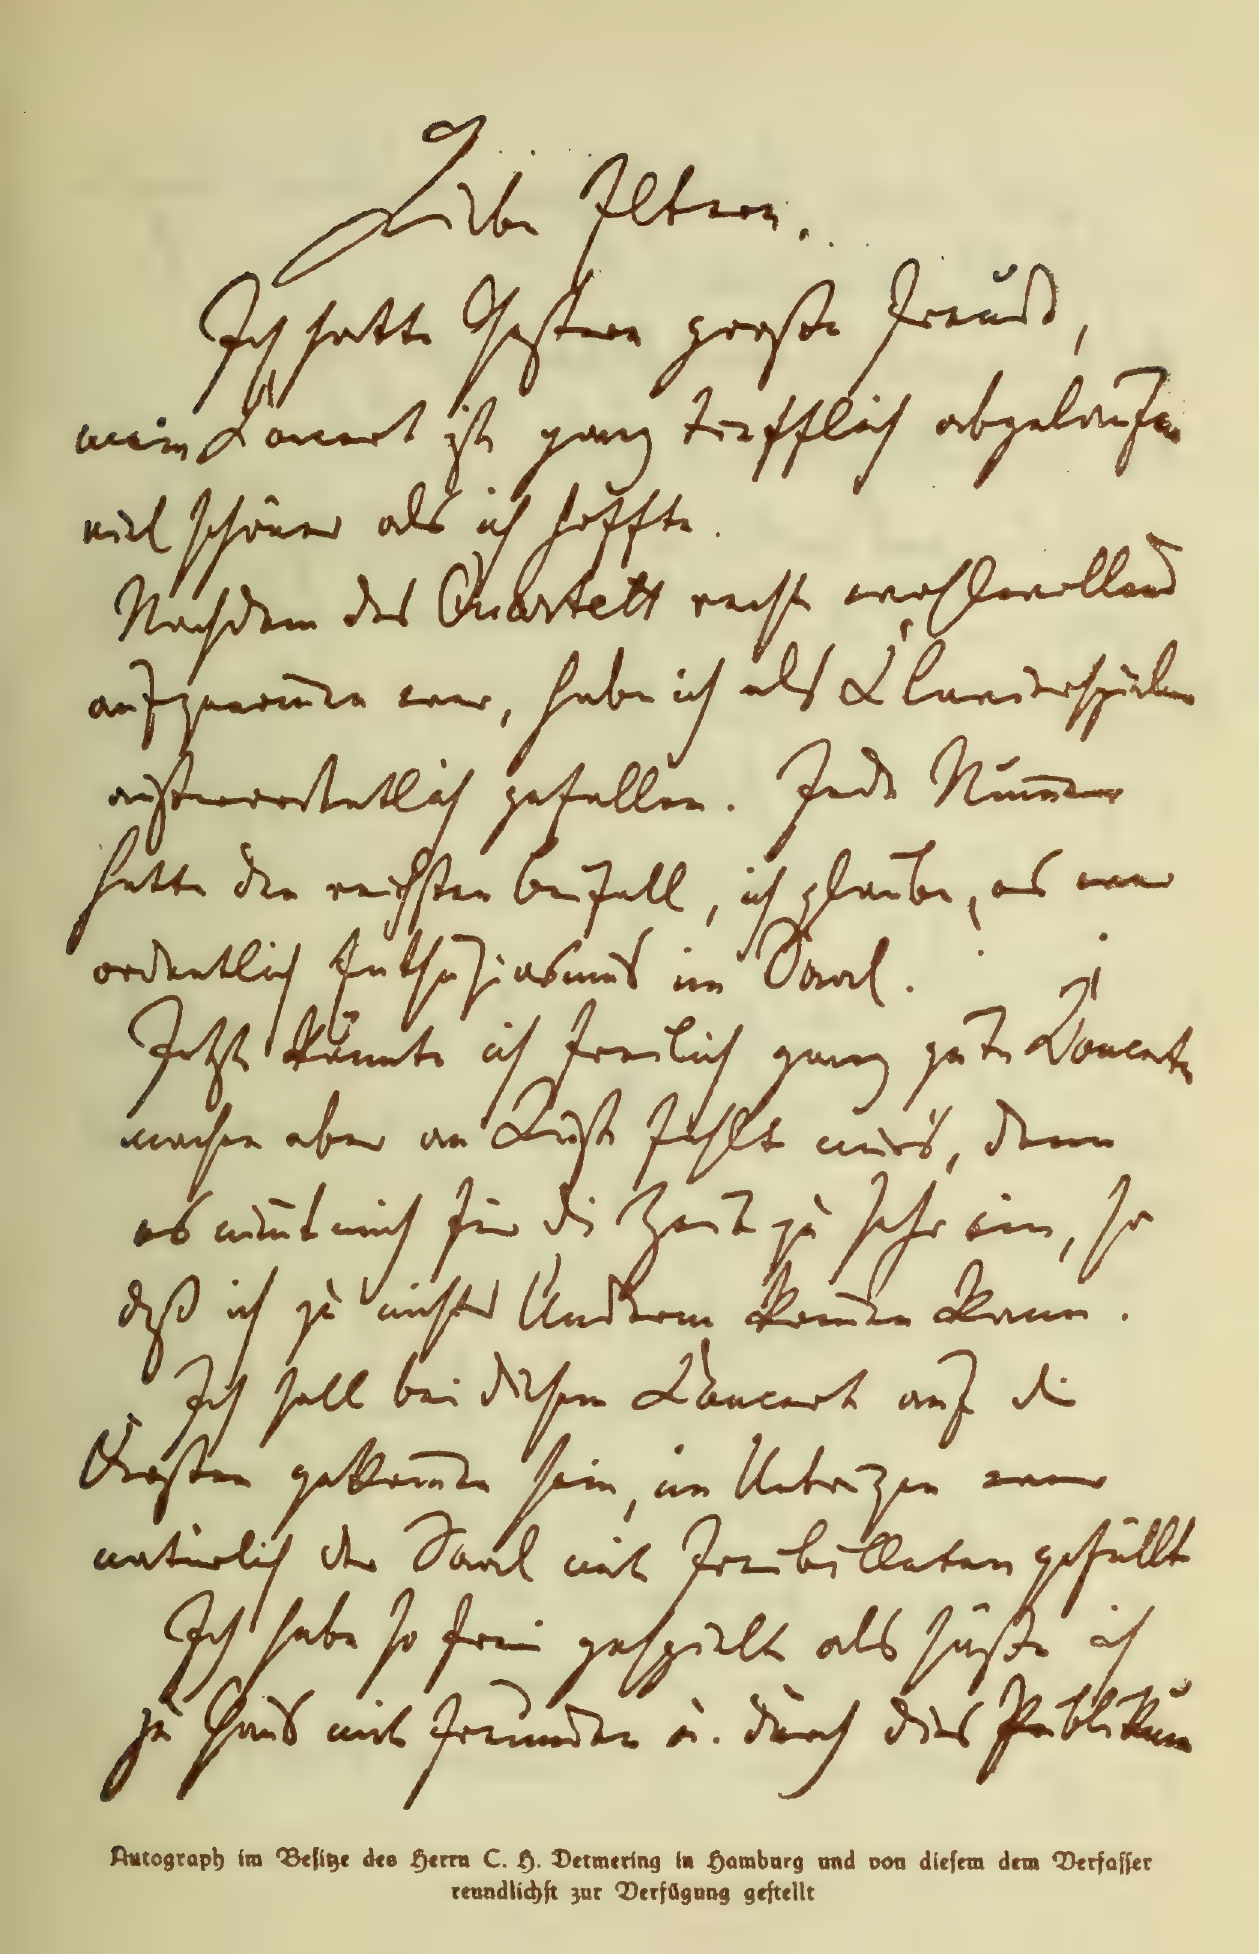 Liebe Eltern.
Ich hatte Gestern große Freud,
mein Concert ist ganz trefflich abgelaufen
viel schöner als ich hoffte.
Nachdem das Quartett recht wohlwollend
aufgenom̅en war, habe ich als Klavierspieler
außerordentlich gefallen. Jede Num̅er
hatte den reichsten Beifall, ich glaube, es war
ordentlich Enthusiasmus im Saal.
Jetzt könnte ich freilich ganz gute Concerte
machen aber an Lust fehlt mir's, denn
es nim̅t mich für die Zeit zu sehr ein, so
daß ich zu nichts Anderm kom̅en kann.
Ich soll bei diesem Concert auf die
Kosten gekom̅en sein, im Uebrigen war
natürlich der Saal mit Freibilleten gefüllt
Ich habe so frei gespielt als säße ich
zu Haus mit Freunden u. durch dies Publikum
Autograph im Besitze des Herrn C. H. Detmering in Hamburg und von diesem dem Verfasser
reundlichst zur Verfügung gestellt